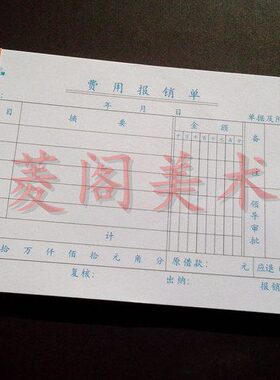 费用报销单
年 月 日 单据及附
目 摘 要 金 额 备注
十 万 千 百 十 元 角 分
菱阁美术
领导审批
计
拾 万 仟 佰 拾 元 角 分 原借款: 元 应退
复核: 出纳: 报销